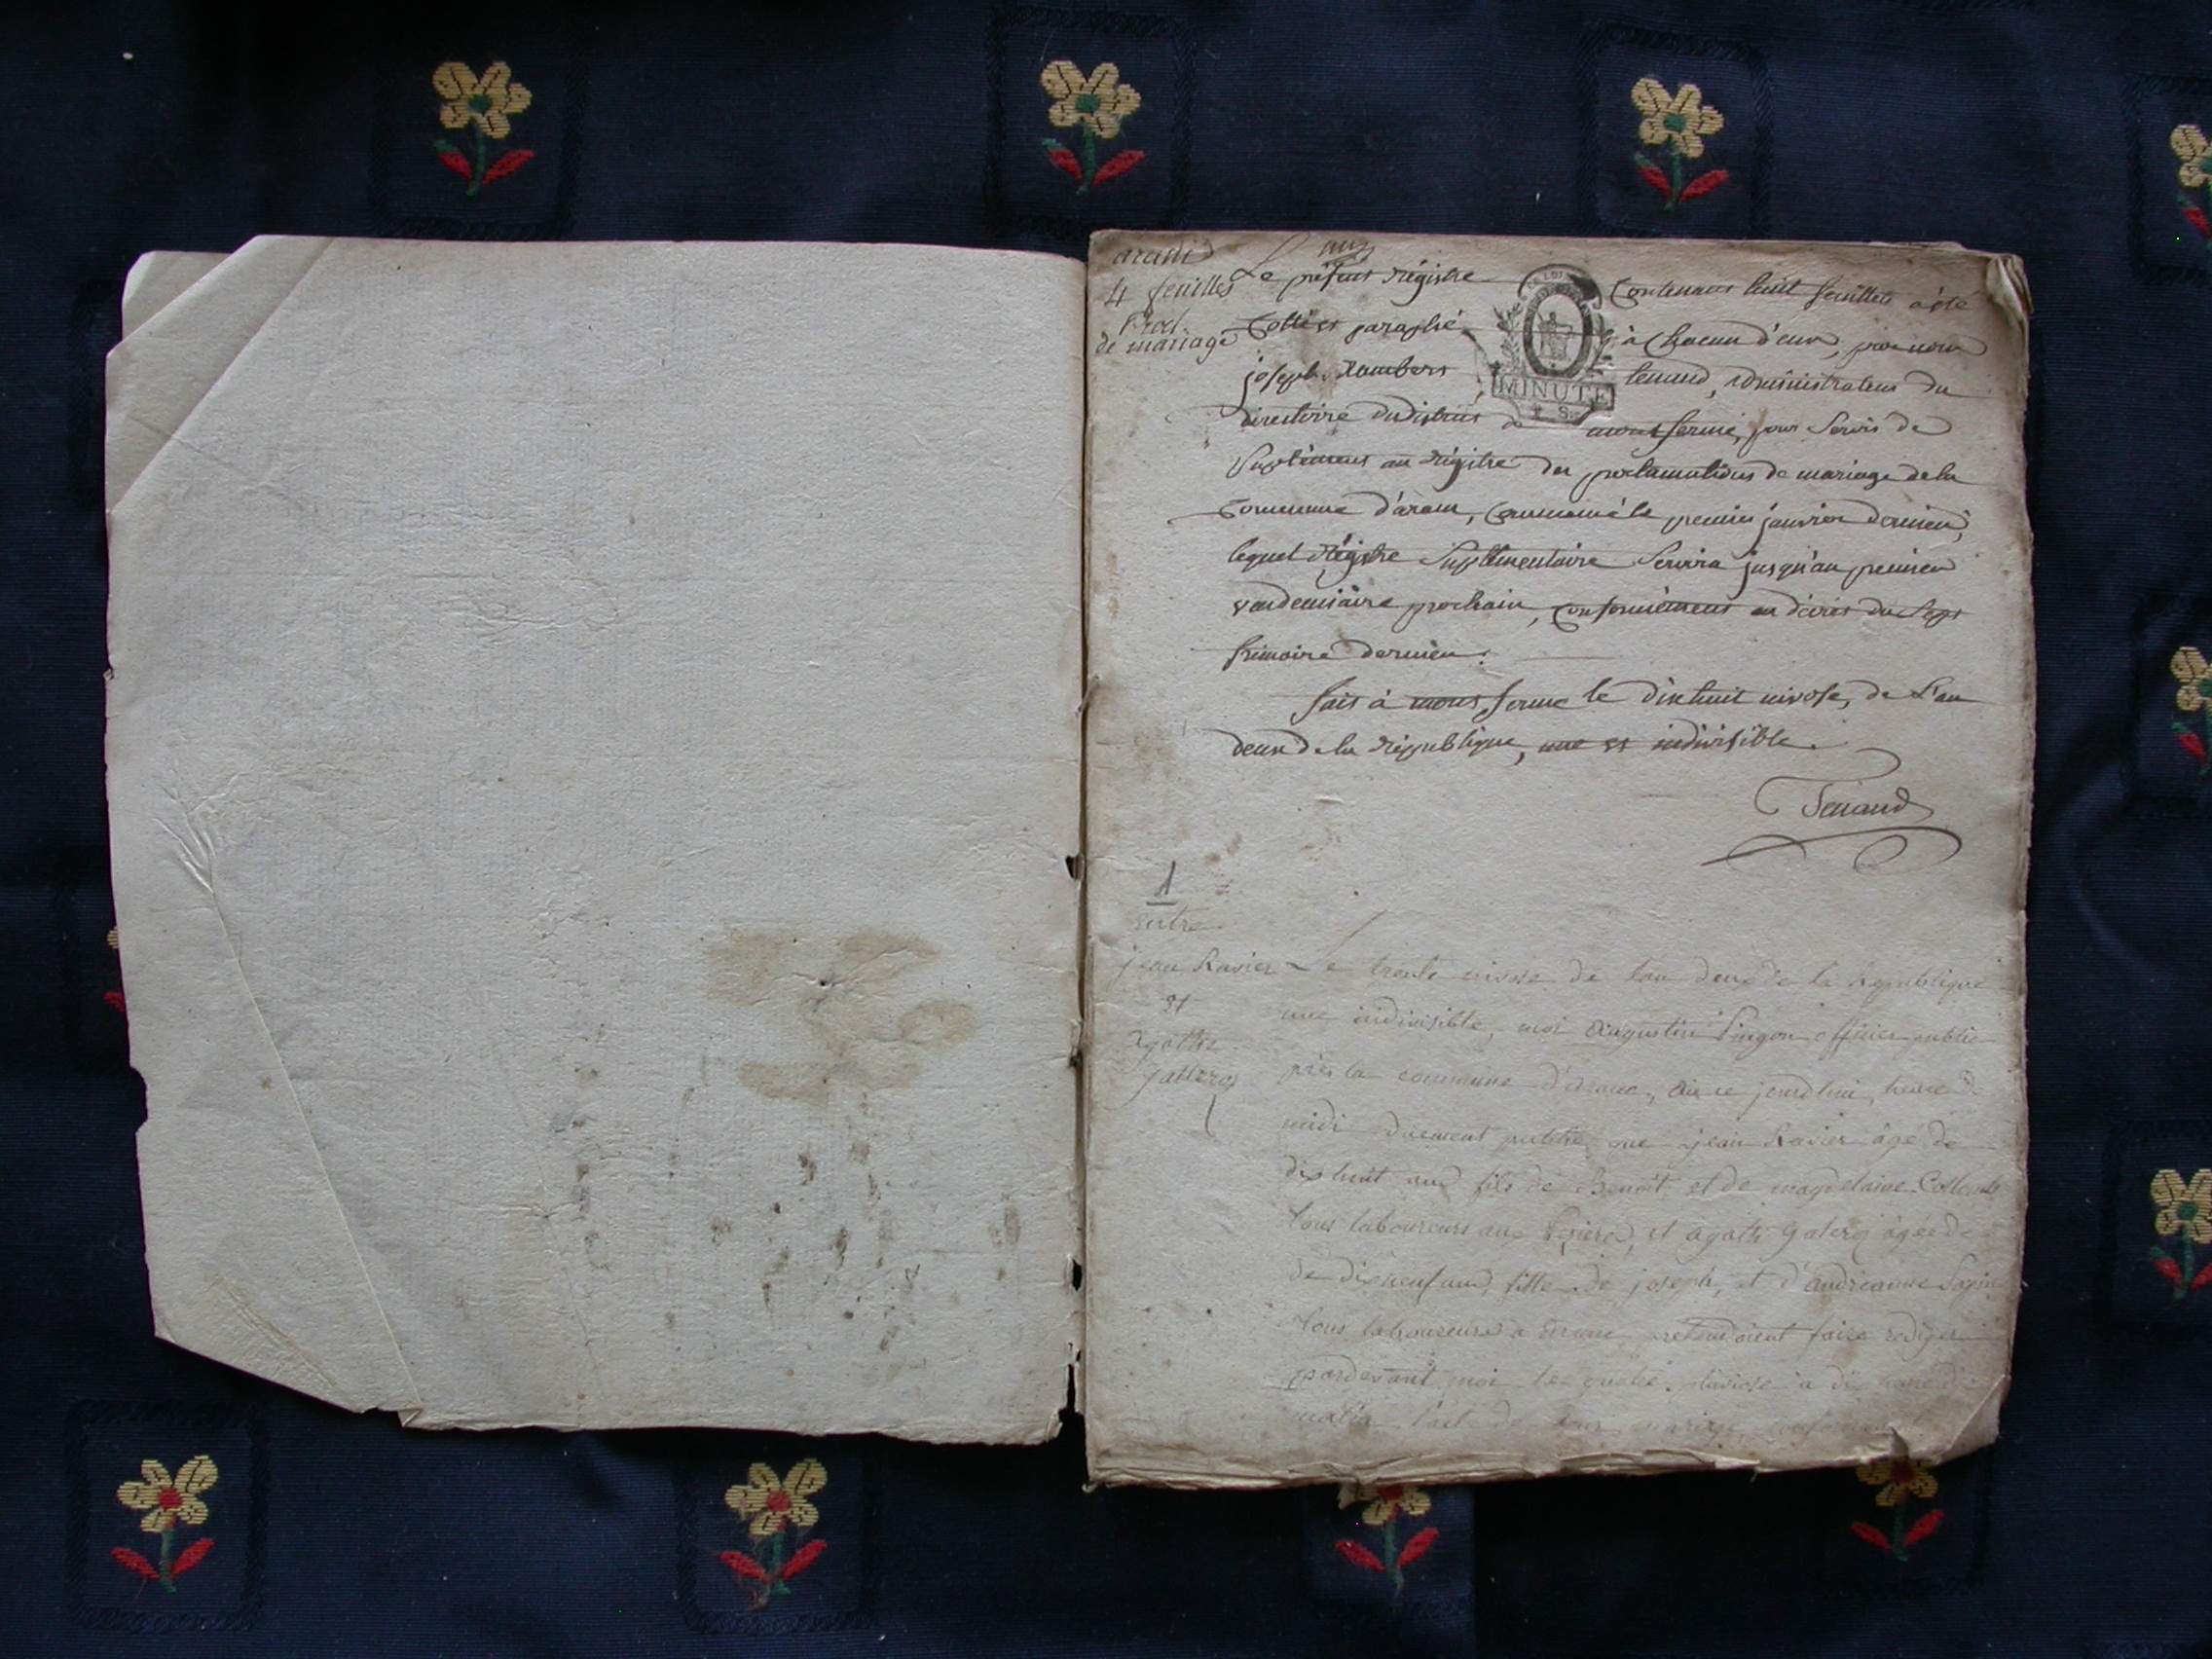 4 feuilles
de mariage
Le présent régistre contenant huit feuillets a été
Cotté et paraphé à chacun d'eux, par nous
joseph Rambert tenand, administrateur du
directoire du district de montferme, pour servir de
Suplément au régitre des proclamations de mariage de la
Commune d'aranc, commencé le premier janvier dernier,
lequel régistre Suplémentaire servira jusqu'au premier
vendemiaire prochain, conformément au décret du sept
frimaire dernier.
fait à mont ferme le dixhuit nivose, de l'an
deux de la république, une et indivisible.
Tenand
MINUTE
1
entre
jean Ravier
et
Agathe
gatteroz
Le trente nivose de l'an deux de la Republique
une indivisible, moi Augustin pingon officier public
près la commune d'aranc, ai ce jourd'hui, heure de
midi duement publié que jean Ravier âgé de
dix huit ans fils de Benoit et de magdelaine
tous laboureurs aux et agathe gateroz âgée de
de dixneuf ans fille de joseph, et d'andréanne
tous laboureurs a aranc, pretendoient faire rediger
pardevant moi le pluviose a dix heure de
matin l'act de leur mariage